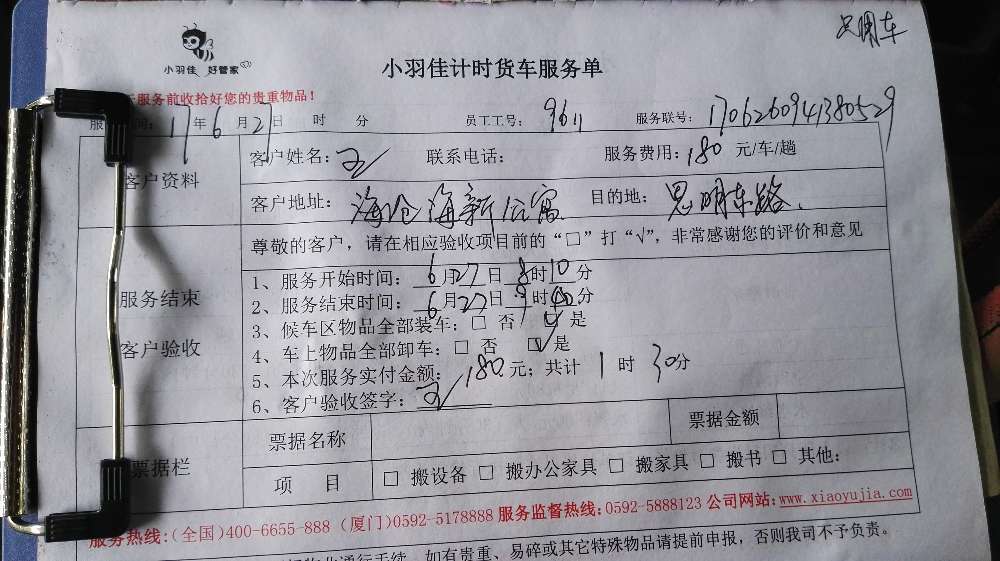 只用车
小羽佳 好管家
小羽佳计时货车服务单
服务前收拾好您的贵重物品!
服 间: 17年6月27日 时 分 员工工号: 9611 服务联号: 1706260941380529
客户资料 客户姓名: 王 联系电话: 服务费用: 180 元/车/趟
客户地址: 海沧海新公寓 目的地: 思明东路.
尊敬的客户，请在相应验收项目前的“□”打“√”，非常感谢您的评价和意见
服务结束
客户验收
1、服务开始时间: 6月27日8时10分
2、服务结束时间: 6月27日9时40分
3、候车区物品全部装车: □ 否 ☑ 是
4、车上物品全部卸车: □ 否 ☑ 是
5、本次服务实付金额: 180元; 共计 1 时 30分
6、客户验收签字: 王
票据栏 票据名称 票据金额
项 目 □ 搬设备 □ 搬办公家具 □ 搬家具 □ 搬书 □ 其他:
服务热线:(全国)400-6655-888 (厦门)0592-5178888 服务监督热线:0592-5888123 公司网站:www.xiaoyujia.com
物业通行手续，如有贵重、易碎或其它特殊物品请提前申报，否则我司不予负责。